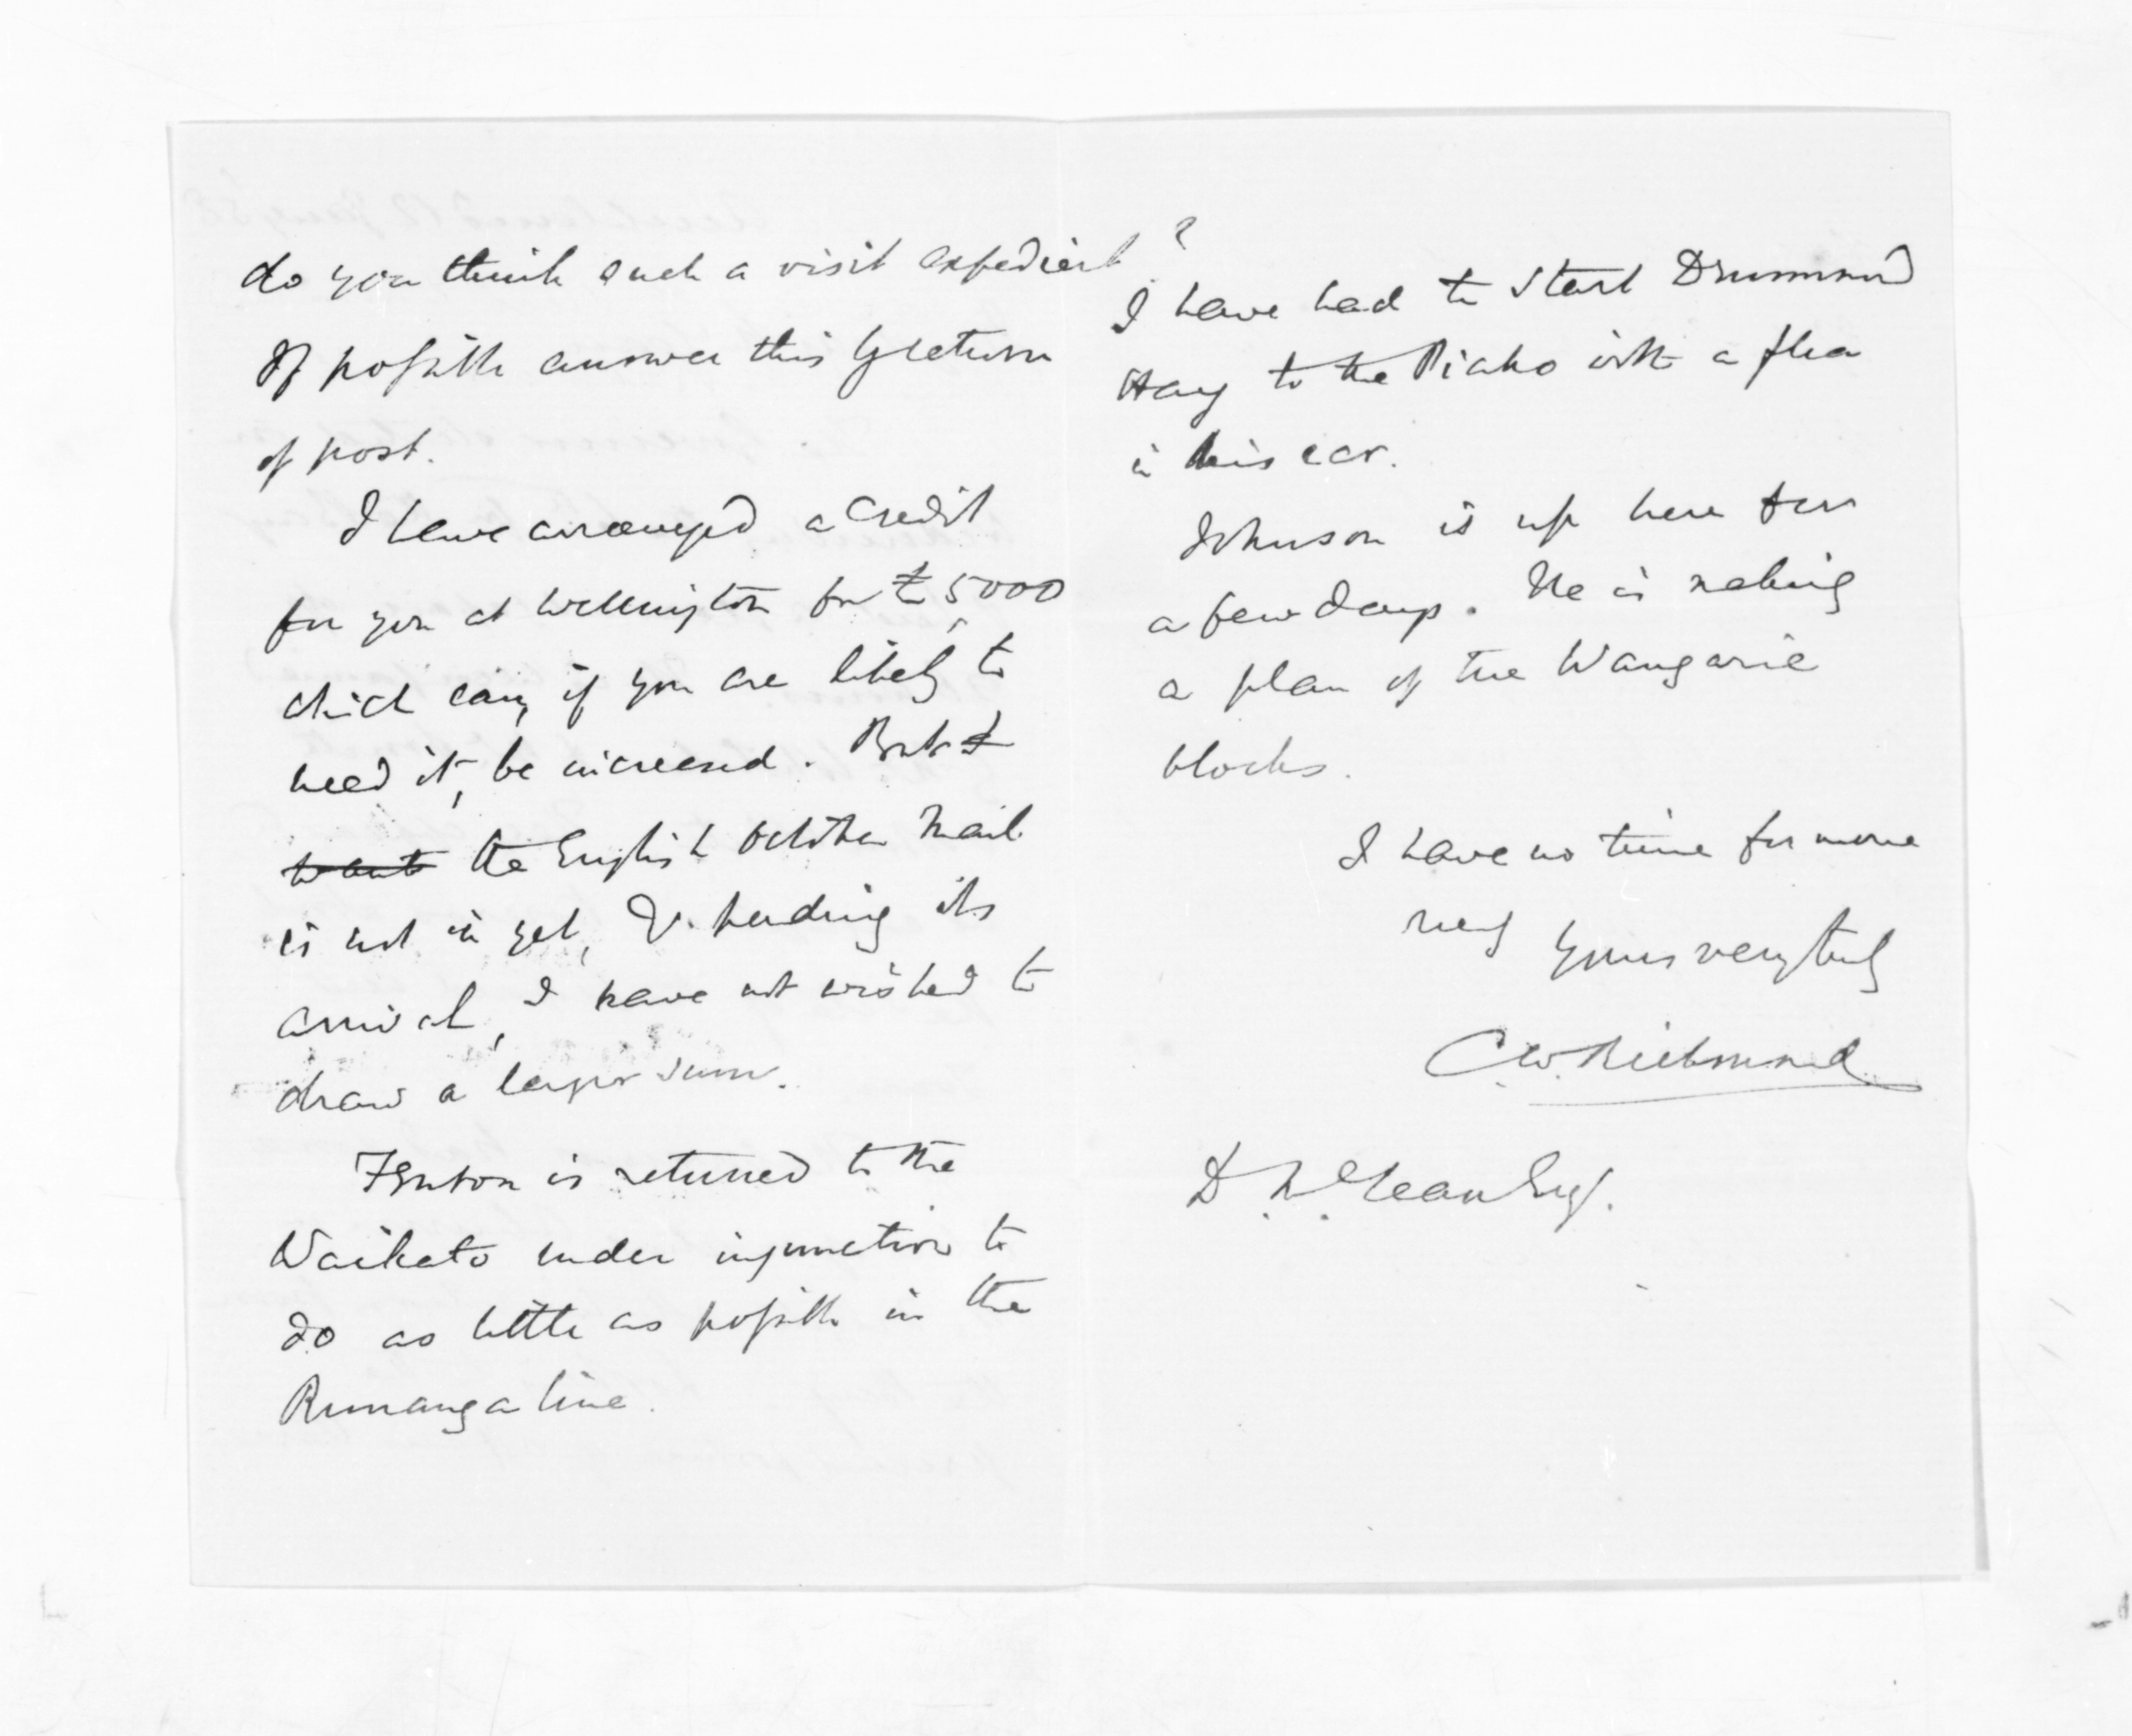 do you think such a visit expedient?
If possible answer this by return
of post.
I have arranged a credit
for you at Wellington for £5000
which can, if you are likely to
need it, be increased. But
wants the English October Mail
is not in yet, &. pending its
arrival, I have not wished to
draw a larger sum.
Fenton is returned to the
Waikato under injunction to
do as little as possible in the
Runanga line.
I have had to start Drummond
Hay to the Piako with a flea
in his ear.
Johnson is up here for
a few days. He is making
a plan of the Wangarie
blocks.
I have no time for more
Yours very truly
C.W. Richmond
D. McLean Esq.